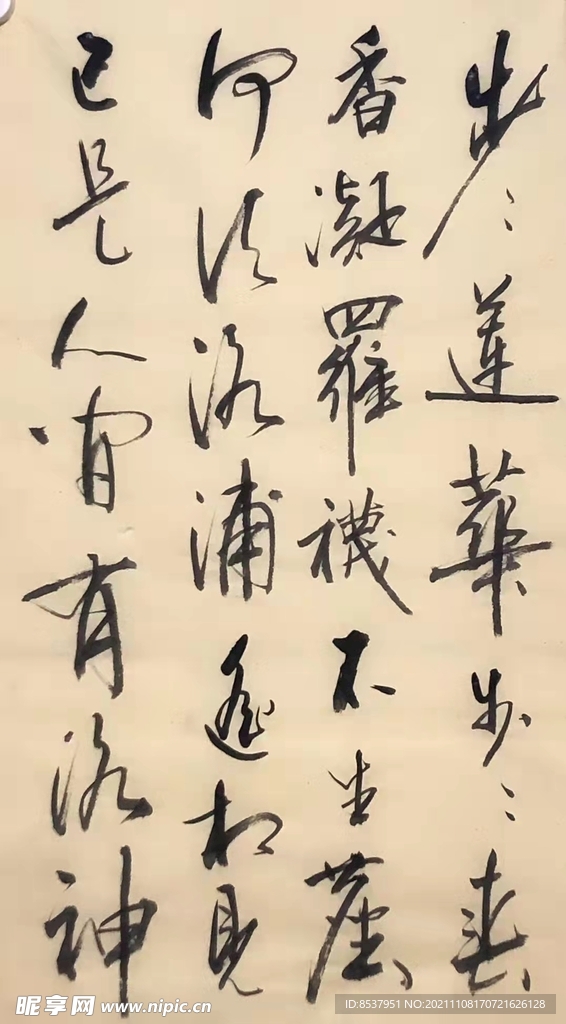 步〻蓮華步〻春
香凝羅襪不生塵
何須洛浦遙相見
已是人間有洛神
昵享网 www.nipic.cn
ID:8537951 NO:20211108170721626128